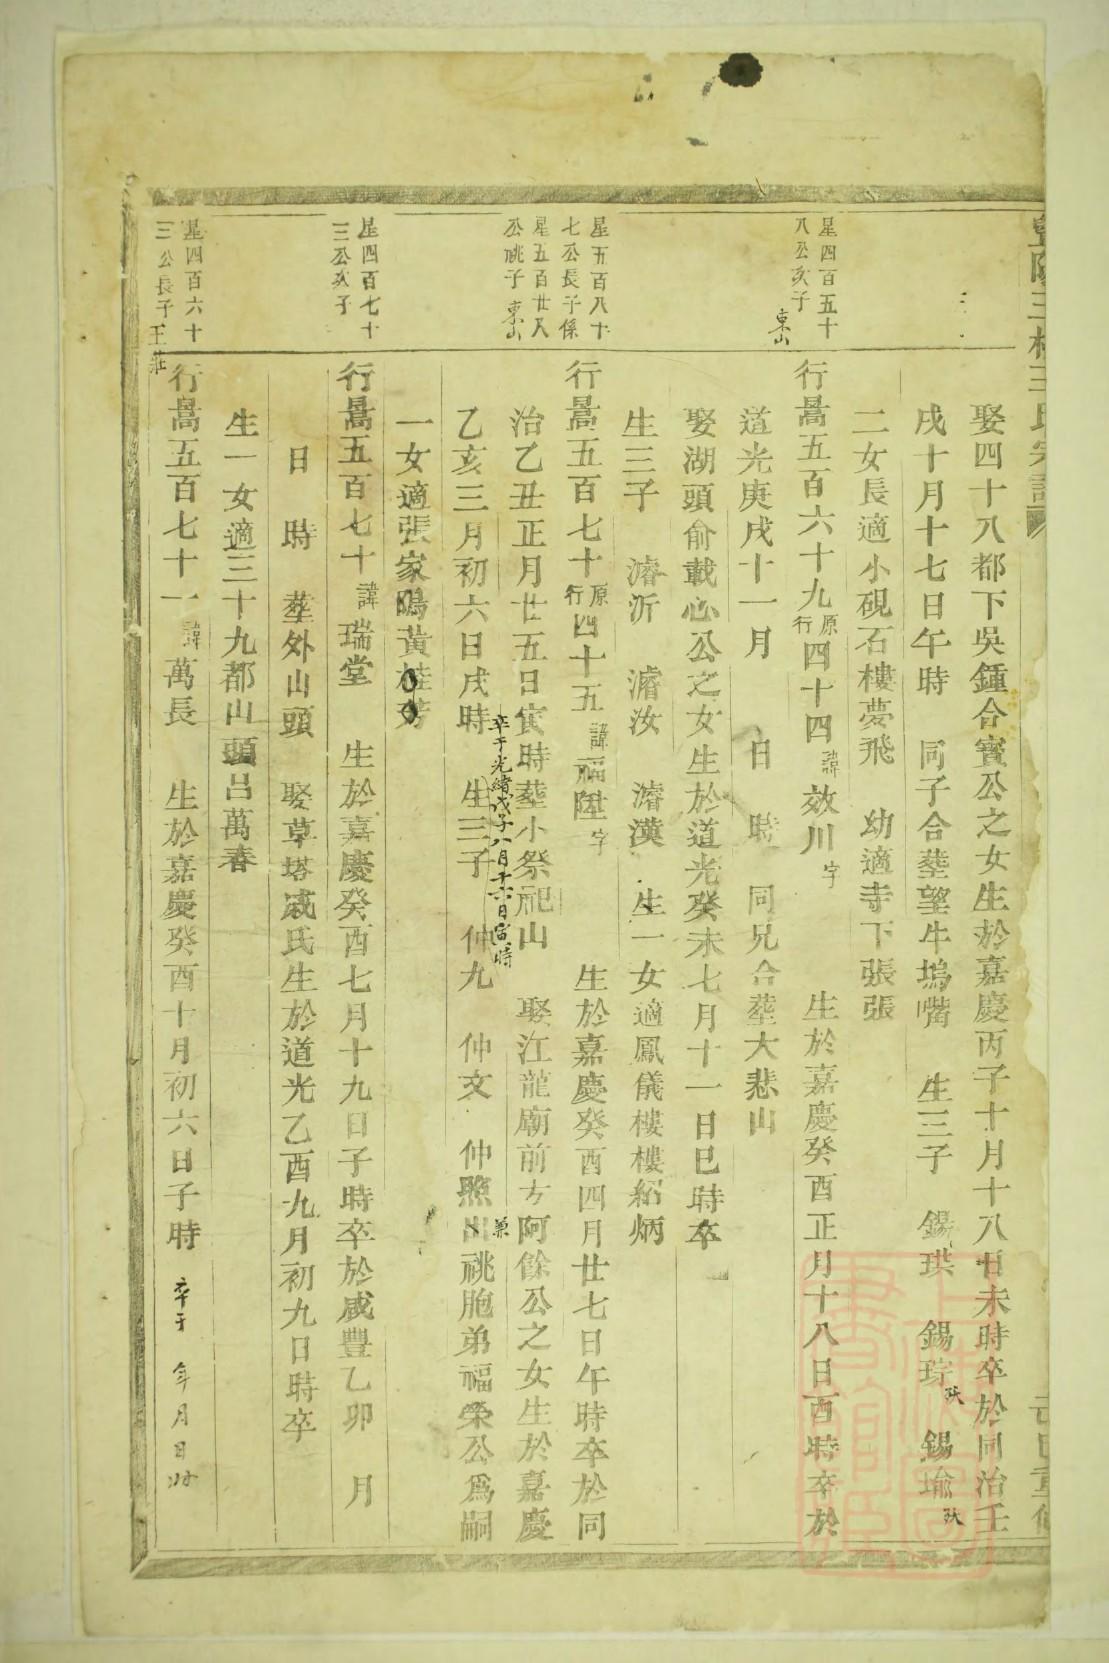 娶四十八都下吳鍾合寳公之女生於嘉慶丙子十月十八日未時卒於同治壬
戌十月十七日午時 同子合塟望牛塢嘴 生三子 錫珙 錫琮 殀 錫瑜 殀
二女長適小硯石樓夢飛 幼適寺下張張
星四百五十
八公亥子
東山
行暠五百六十九 原行 四十四 諱 效川 字 生於嘉慶癸酉正月十八日酉時卒於
道光庚戌十一月 日 時 同兄合塟大悲山
娶湖頭俞載心公之女生於道光癸未七月十一日巳時卒
生三子 濬沂 濬汝 濬漢 生一女適鳳儀樓樓紹炳
星五百八十
七公長子係
星五百廿八
公祧子 東山
行暠五百七十 原行 四十五 諱 福陞 字 生於嘉慶癸酉四月廿七日午時卒於同
治乙丑正月廿五日寅時塟小祭祀山 娶江龍廟前方阿餘公之女生於嘉慶
卒于光緒戊子八月十六日寅時
乙亥三月初六日戌時 生三子 仲九 仲文 仲熙出祧胞弟福榮公爲嗣
兼
一女適張家陽黃桂芳
星四百七十
三公亥子
行暠五百七十 諱 瑞堂 生於嘉慶癸酉七月十九日子時卒於咸豐乙卯 月
日 時 塟外山頭 娶草塔戚氏生於道光乙酉九月初九日時卒
生一女適三十九都山頭呂萬春
星四百六十
三公長子 王莊
行暠五百七十一 諱 萬長 生於嘉慶癸酉十月初六日子時 卒于 年月日时